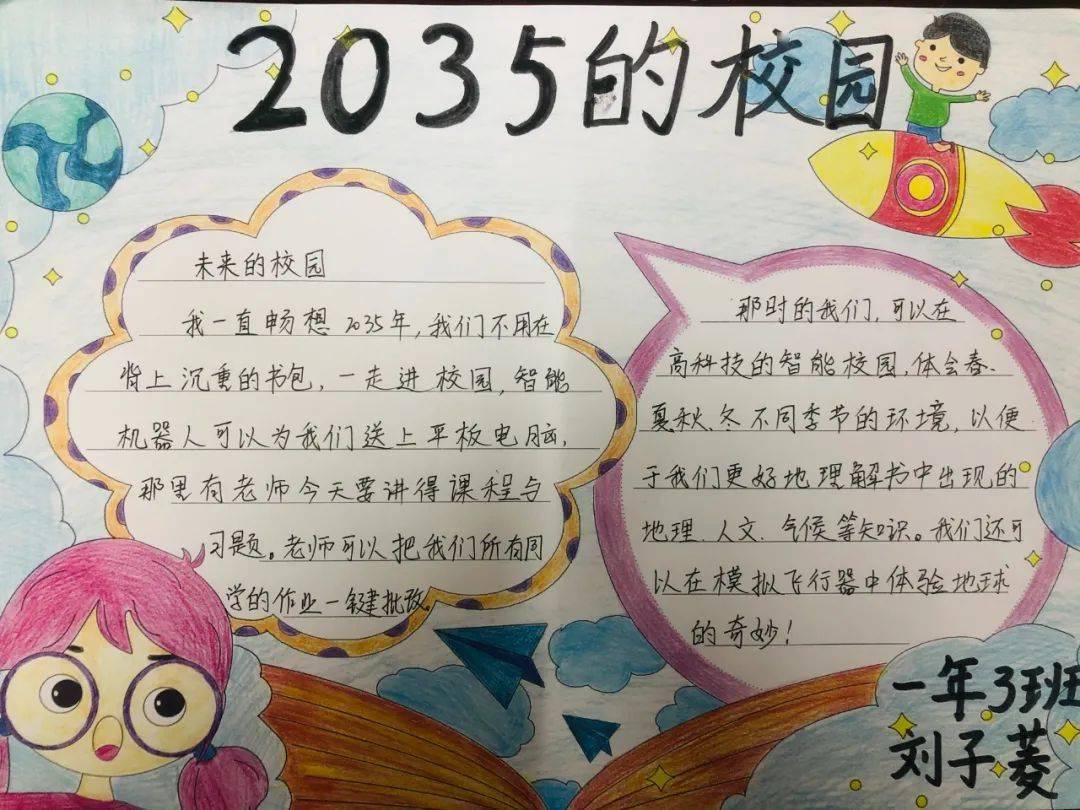 2035的校园
未来的校园
我一直畅想2035年,我们不用在
背上沉重的书包,一走进校园,智能
机器人可以为我们送上平板电脑,
那里有老师今天要讲得课程与
习题。老师可以把我们所有同
学的作业一键批改。
那时的我们,可以在
高科技的智能校园,体会春、
夏秋、冬不同季节的环境,以便
于我们更好地理解书中出现的
地理、人文、气候等知识。我们还可
以在模拟飞行器中体验地球
的奇妙!
一年3班
刘子菱